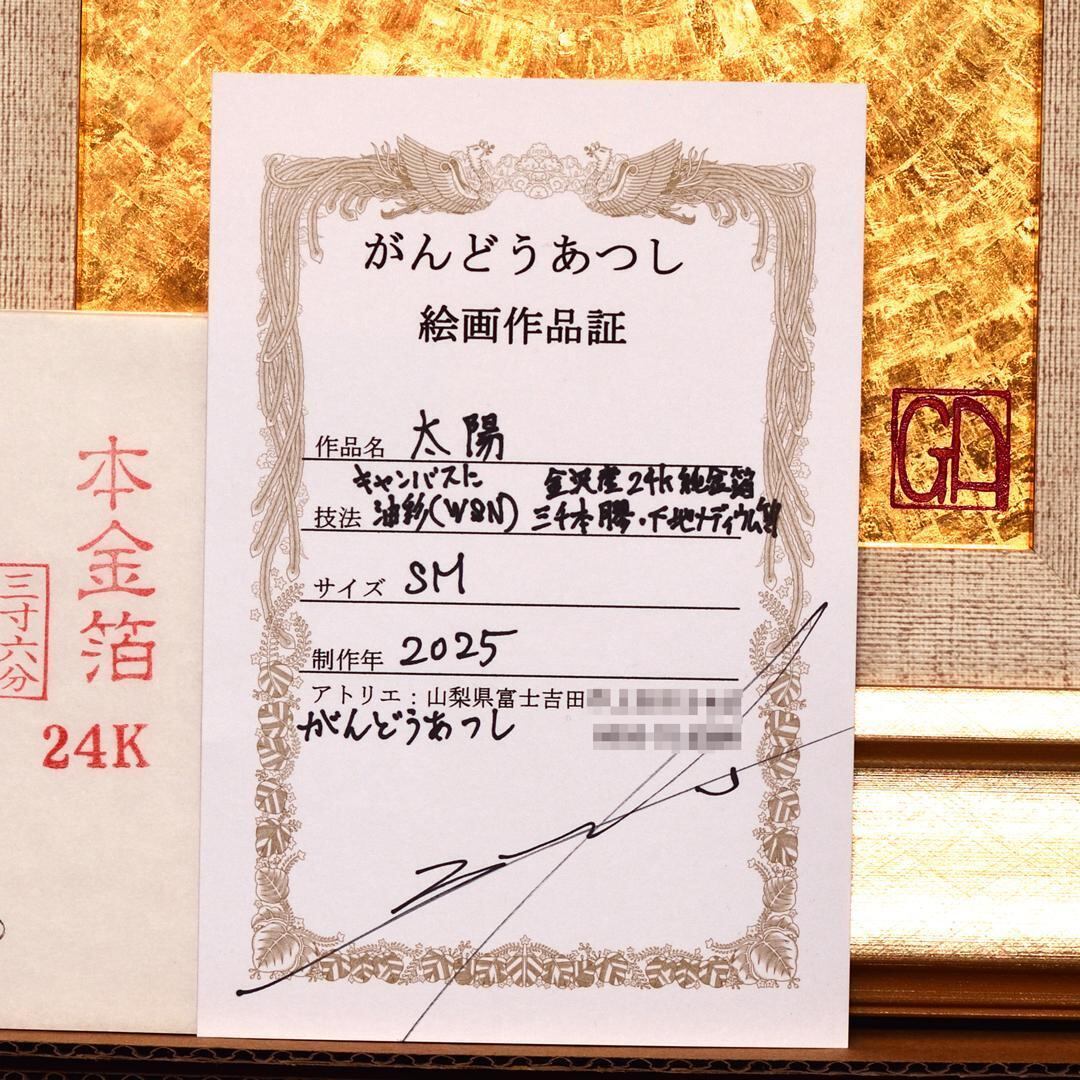 がんどうあつし
絵画作品証
作品名 太陽
キャンバスに 金沢産24K純金箔
技法 油彩(W&N) 三千本膠・下地メディウム等
サイズ SM
制作年 2025
アトリエ：山梨県富士吉田
がんどうあつし
本金箔
三寸六分
24K
GA